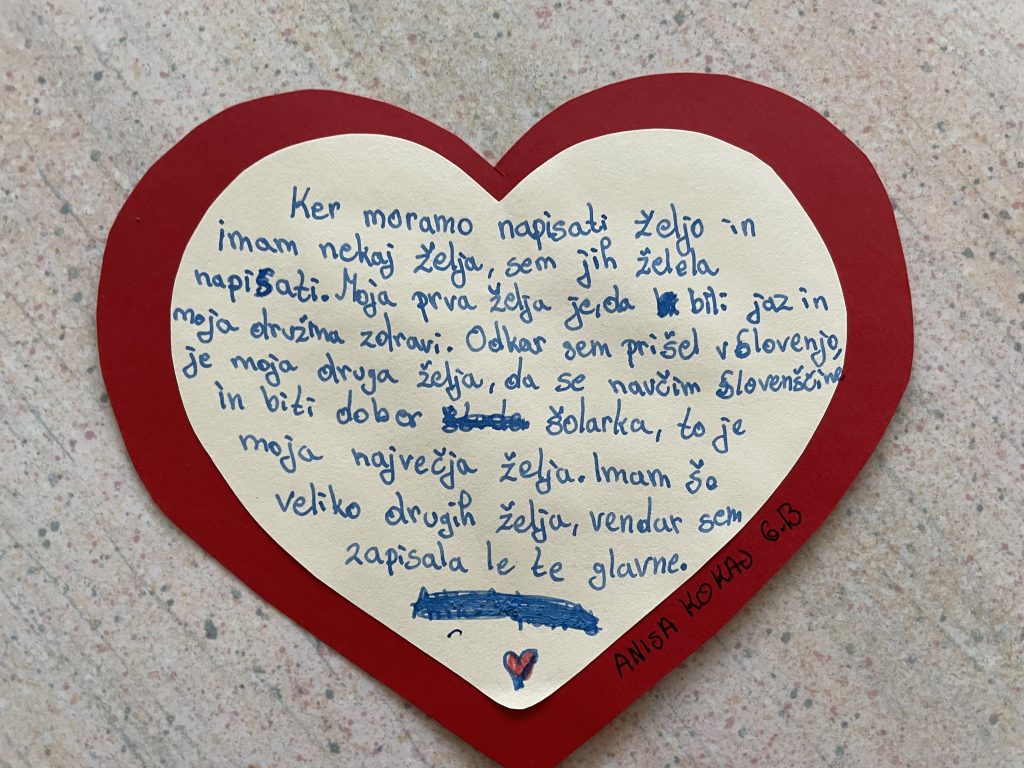 Ker moramo napisati željo in
imam nekaj želja, sem jih želela
napisati. Moja prva želja je, da bili jaz in
moja družina zdravi. Odkar sem prišel v Slovenjo,
je moja druga želja, da se navčim Slovenščine
in biti dober šolarka, to je
moja največja želja. Imam še
veliko drugih želja, vendar sem
zapisala le te glavne.
ANISA KOKAJ 6.B